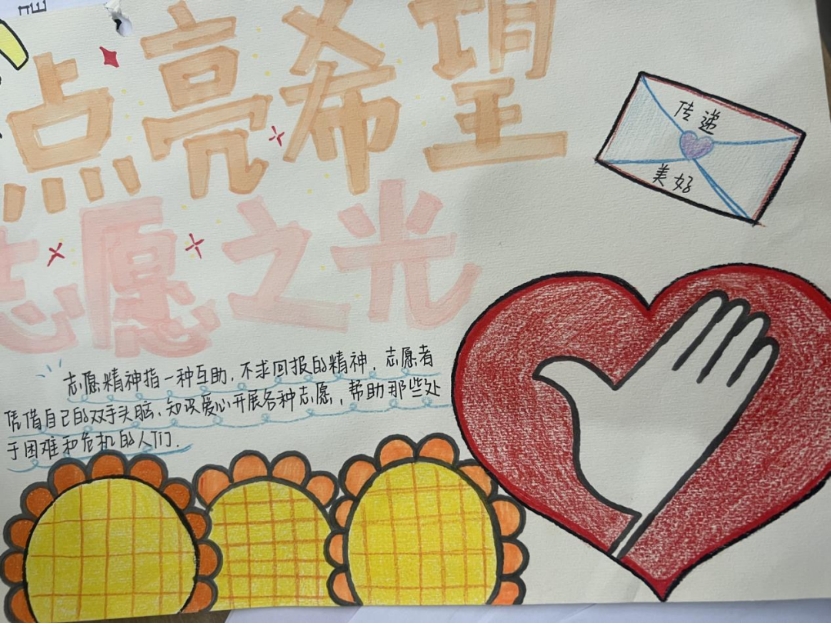 点亮希望
志愿之光
传递
美好
志愿精神指一种互助、不求回报的精神，志愿者
凭借自己的双手头脑、知识爱心开展各种志愿，帮助那些处
于困难和危机的人们．